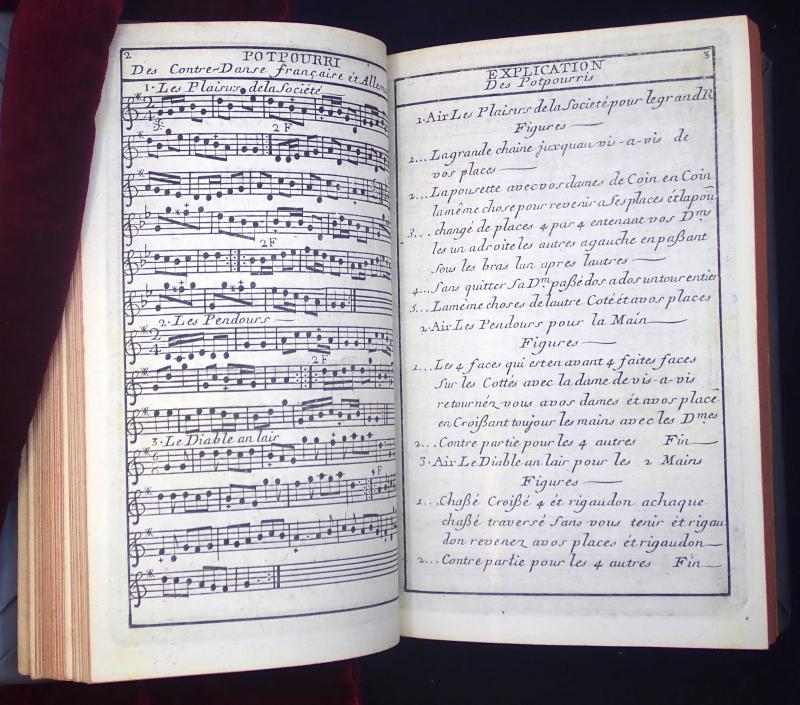 2
POTPOURRI
Des Contre-Danse française ét Allem
1. Les Plaisirs de la Société
2 F
2 F
2. Les Pendours
2 F
3. Le Diable an lair
4 F
3
EXPLICATION
Des Potpourris
1. Air Les Plaisirs de la Societé pour le grand R
Figures
1... La grande chaine juxquau vis-a-vis de
vos places
2... La pousette avec vos dames de Coin en Coin
la même chose pour revenir a Ses places ét lapou
3... changé de places 4 par 4 entenant vos Dmes
les un adroite les autres agauche en paßant
Sous les bras lun apres lautres
4... Sans quitter Sa Dme paßé dos a dos un tour entier
5... La même choses de lautre Coté ét avos places
2. Air Les Pendours pour la Main
Figures
1... Les 4 faces qui est en avant 4 faites faces
Sur les Cottés avec la dame de vis-a-vis
retournéz vous avos dames ét avos place
en Croißant toujour les mains avec les Dmes
2... Contre partie pour les 4 autres Fin
3. Air Le Diable an lair pour les 2 Mains
Figures
1... Chaßé Croißé 4 ét rigaudon achaque
chaßé traversé Sans vous tenir ét rigau
don revenez avos places ét rigaudon
2... Contre partie pour les 4 autres Fin